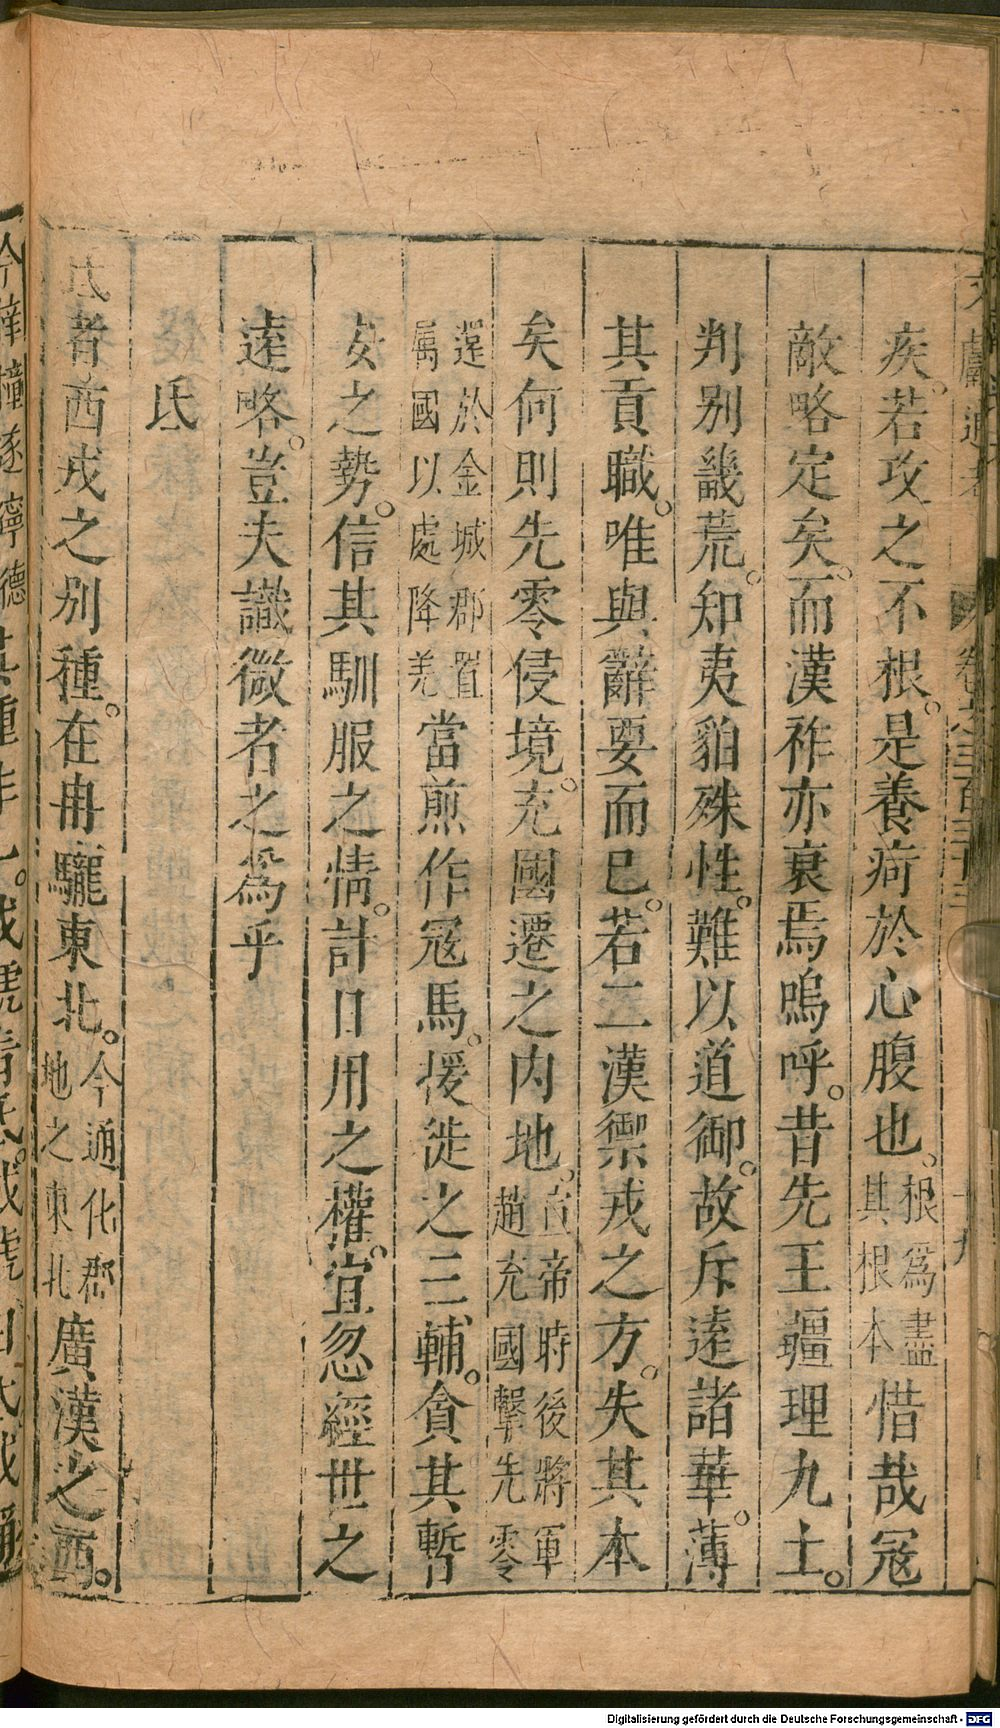 文獻通考 卷之三百三十三
疾。若攻之不根。是養疴於心腹也。根爲盡其根本惜哉冦
敵略定矣。而漢祚亦衰焉嗚呼。昔先王疆理九土。
判別畿荒。知夷貊殊性。難以道御。故斥逺諸華。薄
其貢職。唯與辭要而已。若二漢禦戎之方。失其本
矣何則先零侵境。充國遷之内地。宣帝時後將軍趙充國擊先零
還於金城郡置屬國以處降羌當煎作冦馬。援徙之三輔。貪其暫
安之勢。信其馴服之情。計日用之權。宜忽經世之
逺略。豈夫識微者之爲乎
氐
氐者西戎之别種。在冉駹東北。今通化郡地之東北廣漢之西。
Digitalisierung gefördert durch die Deutsche Forschungsgemeinschaft - DFG